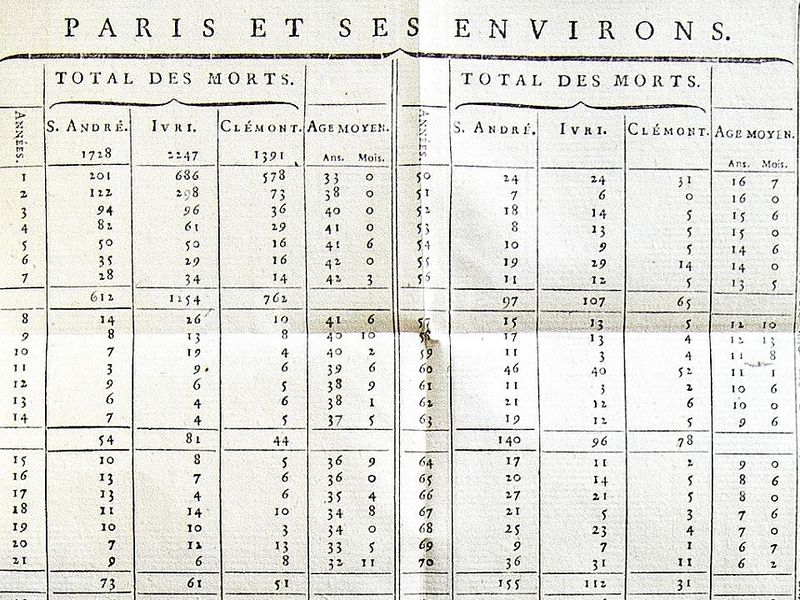 PARIS ET SES ENVIRONS.
TOTAL DES MORTS. TOTAL DES MORTS.
ANNÉES. S. ANDRÉ. IVRI. CLÉMONT. AGE MOYEN. ANNÉES. S. ANDRÉ. IVRI. CLÉMONT. AGE MOYEN.
1728 2247 1391 Ans. Mois. Ans. Mois.
1 201 686 578 33 0 50 24 24 31 16 7
2 122 298 73 38 0 51 7 6 0 16 0
3 94 96 36 40 0 52 18 14 5 15 6
4 82 61 29 41 0 53 8 13 5 15 0
5 50 50 16 41 6 54 10 9 5 14 6
6 35 29 16 42 0 55 19 29 14 14 0
7 28 34 14 42 3 56 11 12 5 13 5
612 1254 762 97 107 65
8 14 26 10 41 6 57 15 13 5 12 10
9 8 13 8 40 10 58 17 13 4 12 13
10 7 19 4 40 2 59 11 3 4 11 8
11 3 9 6 39 6 60 46 40 52 11 1
12 9 6 5 38 9 61 11 3 2 10 6
13 6 4 6 38 1 62 21 12 6 10 0
14 7 4 5 37 5 63 19 12 5 9 6
54 81 44 140 96 78
15 10 8 5 36 9 64 17 11 2 9 0
16 13 7 6 36 0 65 20 14 5 8 6
17 13 4 6 35 4 66 27 21 5 8 0
18 11 14 10 34 8 67 21 5 3 7 6
19 10 10 3 34 0 68 25 23 4 7 0
20 7 12 13 33 5 69 9 7 1 6 7
21 9 6 8 32 11 70 36 31 11 6 2
73 61 51 155 112 31